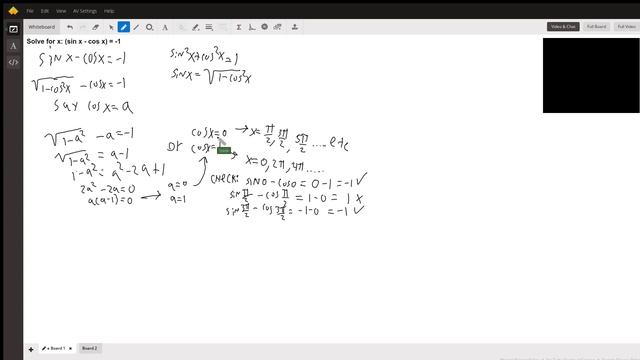 Whiteboard
Video & Chat
Full Board
Full Video
Solve for x: (sin x - cos x) = -1
sin x - cos x = -1
√1-cos²x - cos x = -1
say cos x = a
sin²x + cos²x = 1
sin x = √1-cos²x
√1-a² - a = -1
√1-a² = a-1
1-a² = a² - 2a + 1
2a² - 2a = 0
a(a-1) = 0 → a=0
a=1
cos x = 0 → x = π/2, 3π/2, 5π/2 ..... etc
or cos x = 1 → x = 0, 2π, 4π .....
CHECK: sin 0 - cos 0 = 0 - 1 = -1 ✓
sin π/2 - cos π/2 = 1 - 0 = 1 x
sin 3π/2 - cos 3π/2 = -1 - 0 = -1 ✓
Board 1
Board 2